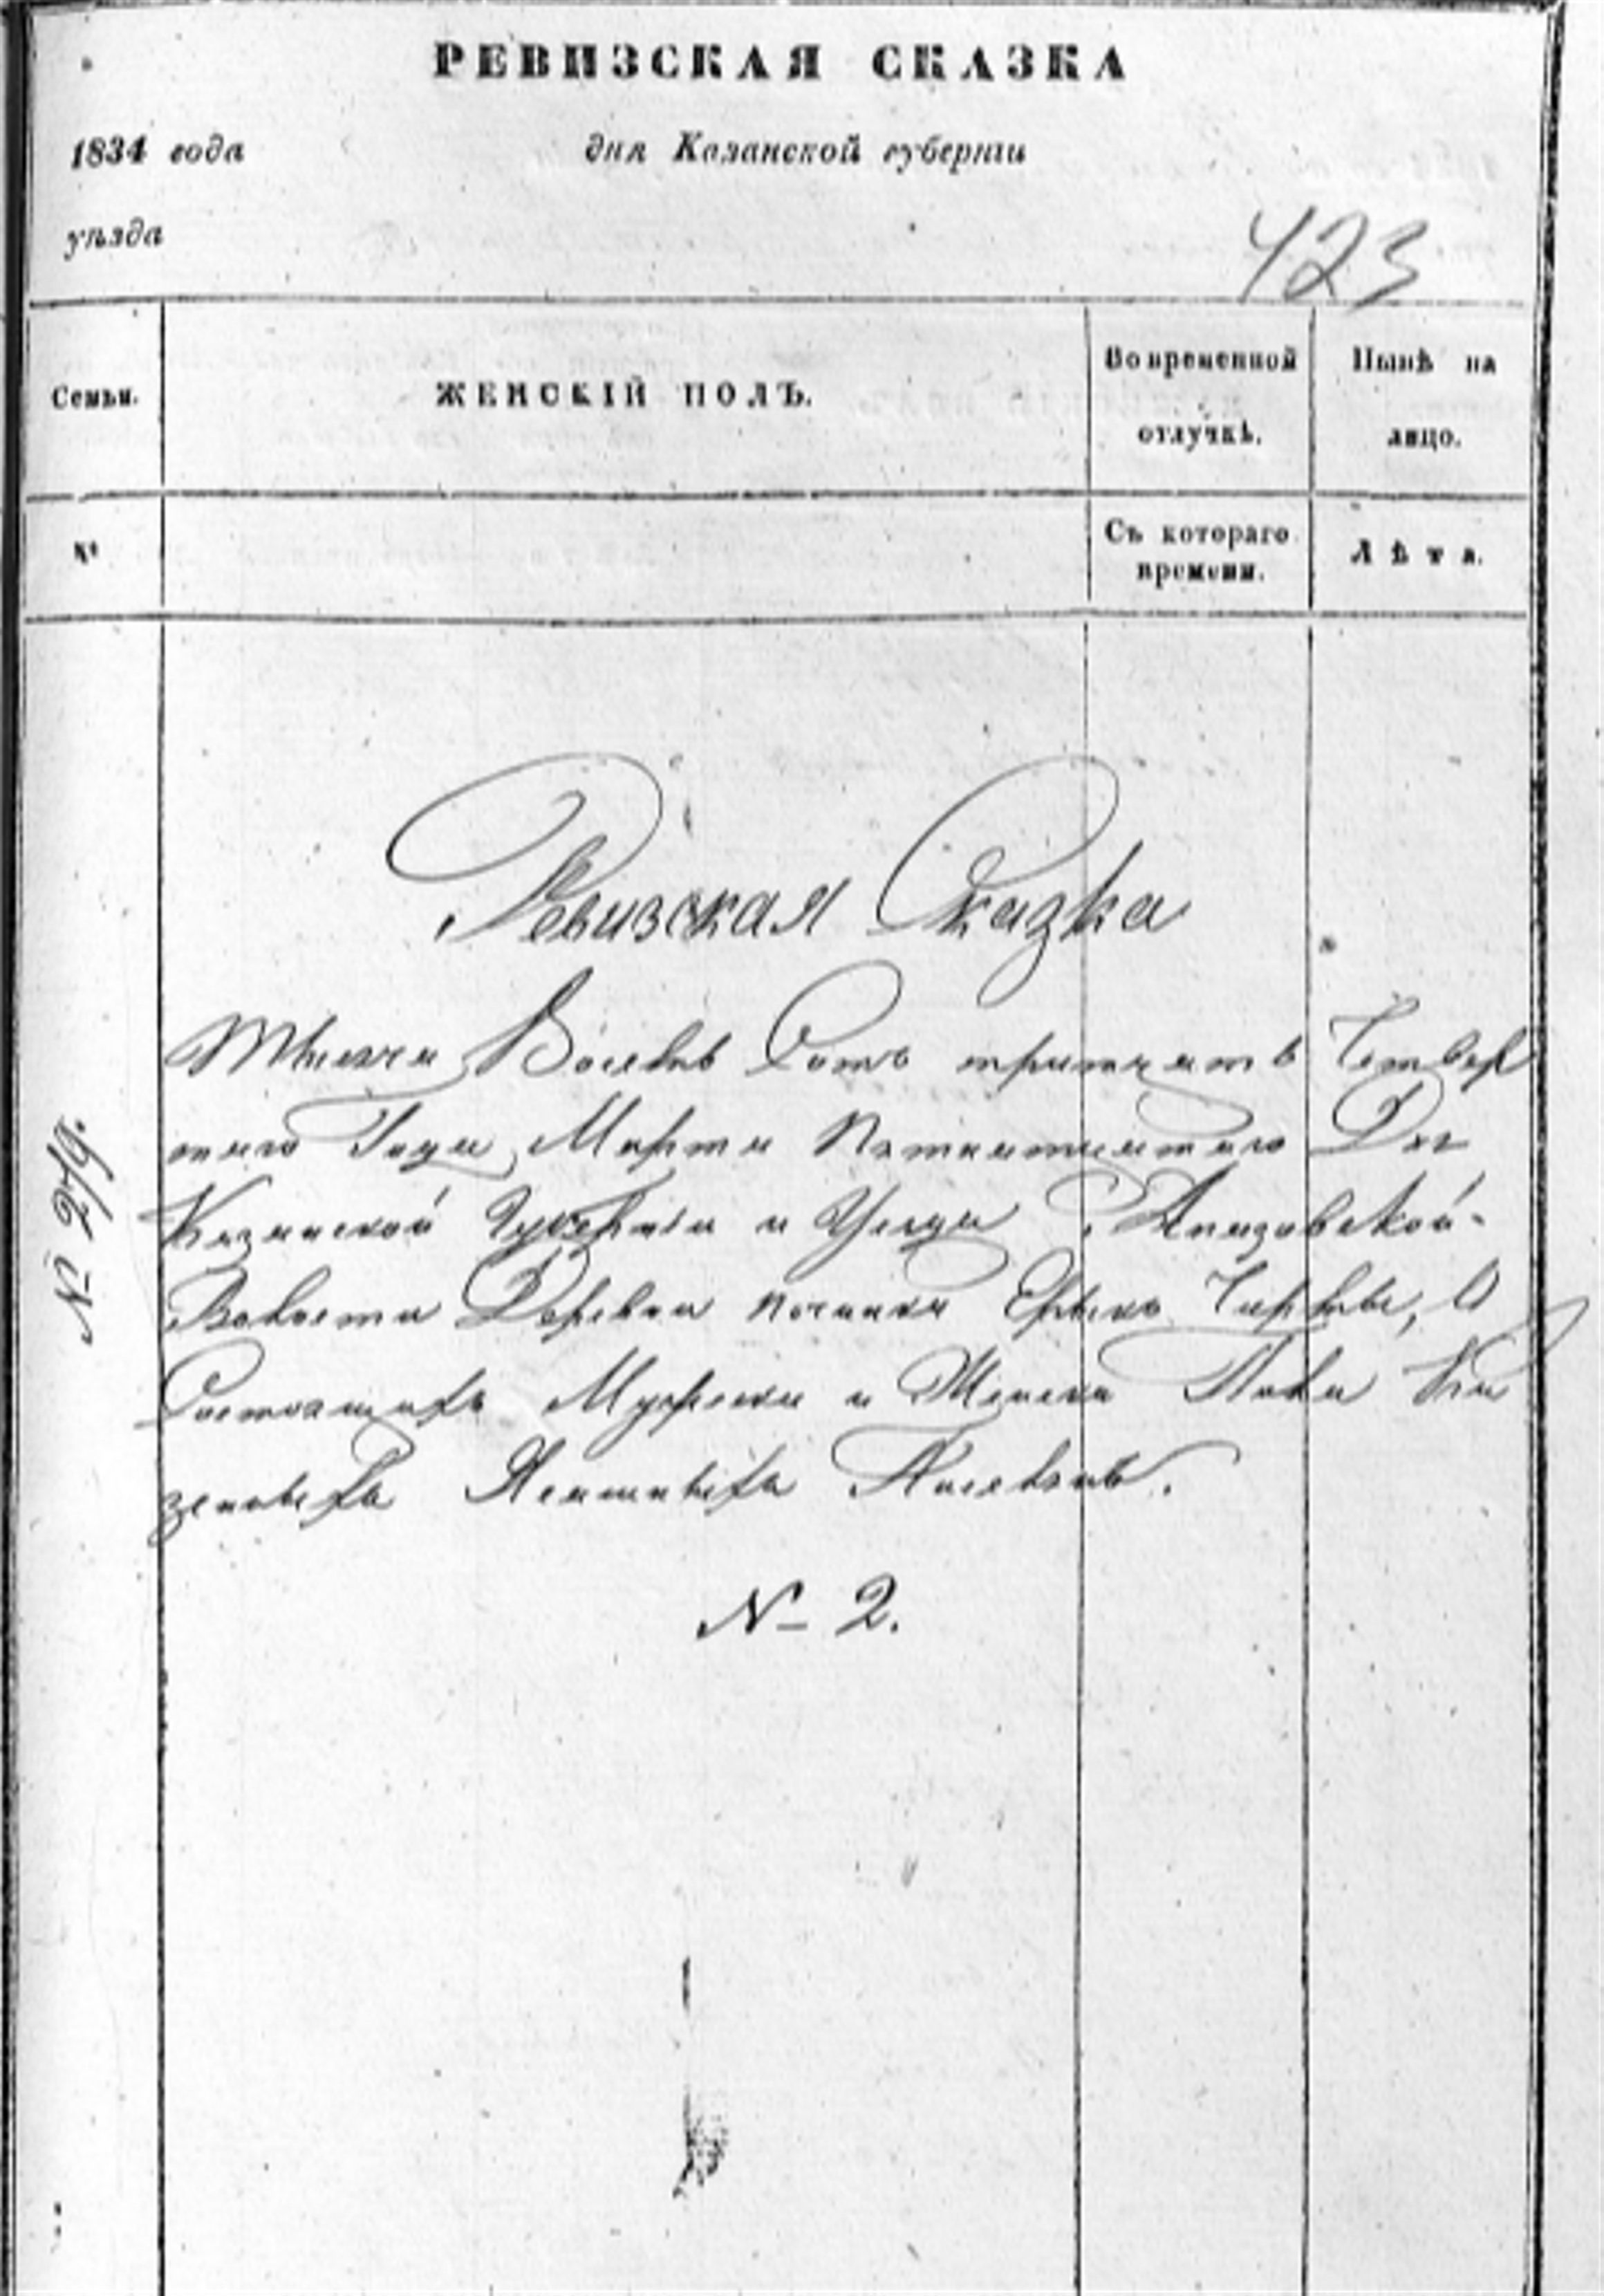 РЕВИЗСКАЯ СКАЗКА
1834 года дня Казанской губерніи
уѣзда
423
Семьи. ЖЕНСКІЙ ПОЛЪ. Во временной отлучкѣ. Нынѣ на лицо.
№ Съ котораго времени. Лѣта.
Ревизская Сказка
Тысяча Восемь Сотъ тритцать Четвер
таго Года Марта Дня
Казанской Губерніи и Уезда
Волости Деревни починка О
Состоящихъ Мужеска и Женска Пола Ка
зенныхъ Ясашныхъ
№ 2.
№ 279.